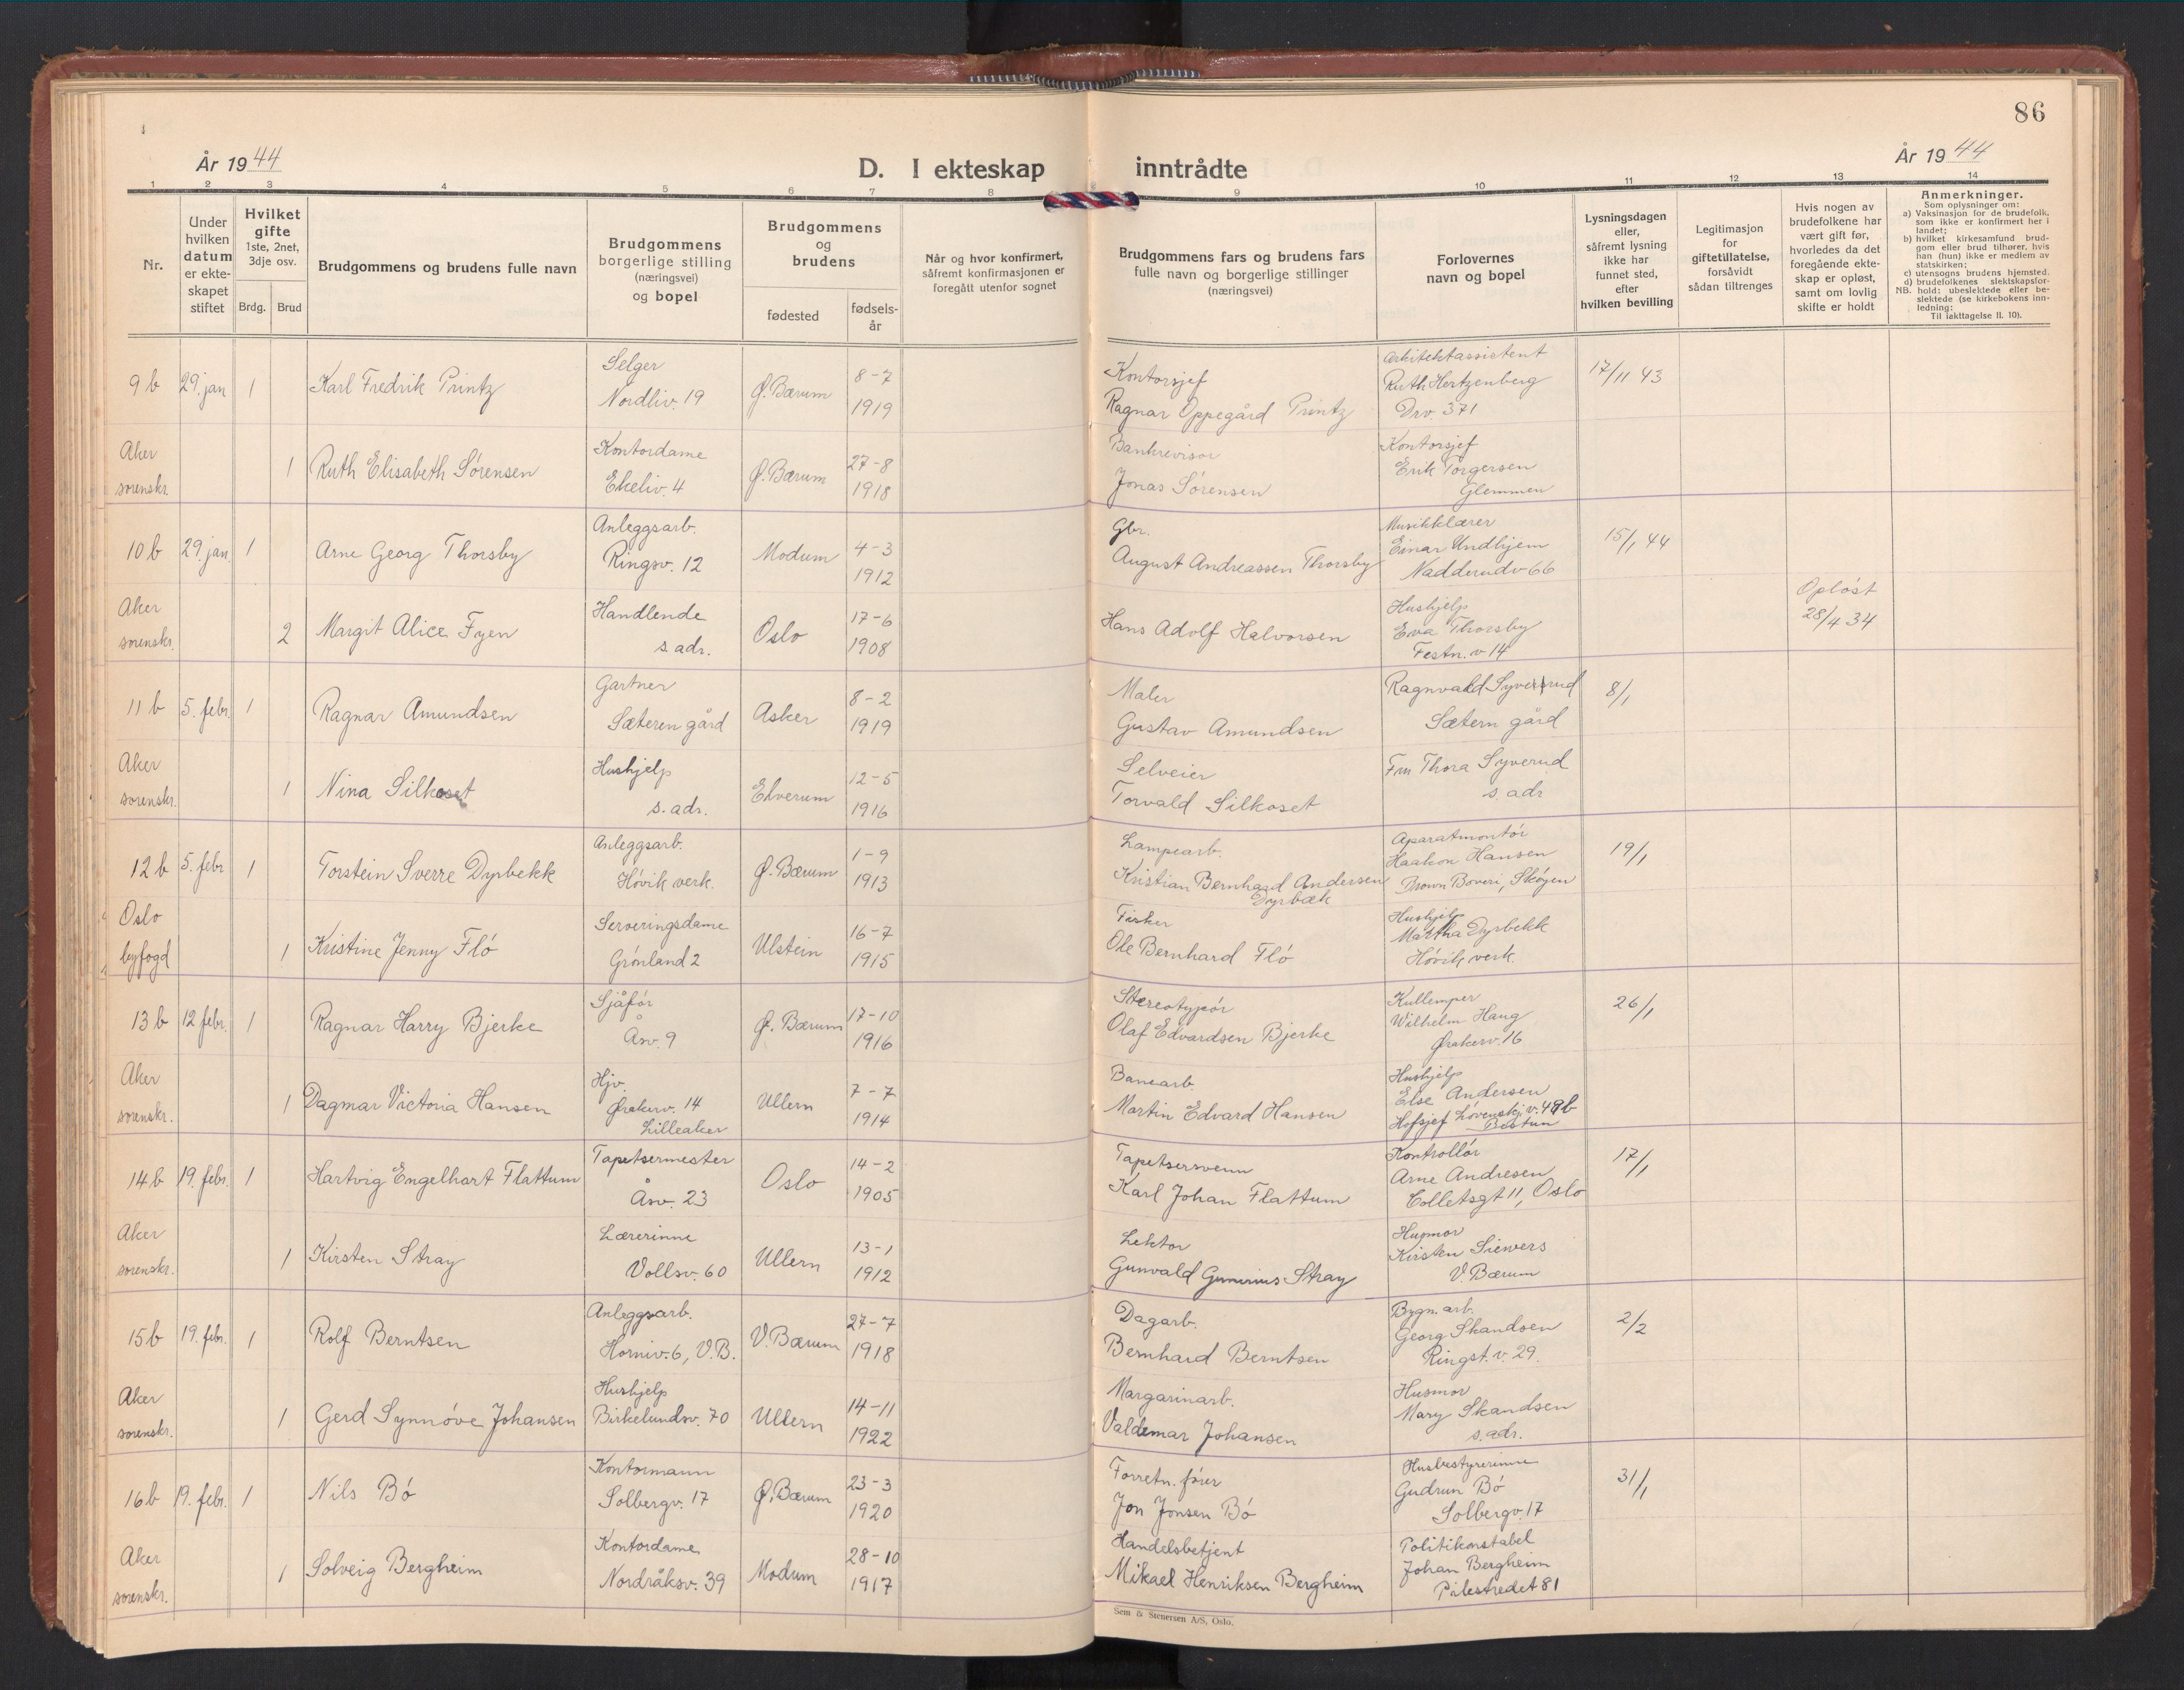 86
År 1944
D. I ekteskap inntrådte
År 1944
1 2 3 4 5 6 7 8 9 10 11 12 13 14
Nr.
Under
hvilken
datum
er ekte-
skapet
stiftet
Hvilket
gifte
1ste, 2net,
3dje osv.
Brdg. Brud
Brudgommens og brudens fulle navn
Brudgommens
borgerlige stilling
(næringsvei)
og bopel
Brudgommens
og
brudens
fødested
fødsels-
år
Når og hvor konfirmert,
såfremt konfirmasjonen er
foregått utenfor sognet
Brudgommens fars og brudens fars
fulle navn og borgerlige stillinger
(næringsvei)
Forlovernes
navn og bopel
Lysningsdagen
eller,
såfremt lysning
ikke har
funnet sted,
efter
hvilken bevilling
Legitimasjon
for
giftetillatelse,
forsåvidt
sådan tiltrenges
Hvis nogen av
brudefolkene har
vært gift før,
hvorledes da det
foregående ekte-
skap er opløst,
samt om lovlig
skifte er holdt
Anmerkninger.
Som oplysninger om:
a) Vaksinasjon for de brudefolk,
som ikke er konfirmert her i
landet;
b) hvilket kirkesamfund brud-
gom eller brud tilhører, hvis
han (hun) ikke er medlem av
statskirken;
c) utensogns brudens hjemsted.
d) brudefolkenes slektskapsfor-
NB. hold: ubeslektede eller be-
slektede (se kirkebokens inn-
ledning:
Til iakttagelse II. 10).
9 b 29. jan 1 Karl Fredrik Printz
Selger
Nordliv. 19
Ø. Bærum
8-7
1919
Kontorsjef
Ragnar Oppegård Printz
Arkitektassistent
Ruth Hertzenberg
Drv 371
17/11 43
Aker
sorenskr.
1 Ruth Elisabeth Sørensen
Kontordame
Ekeliv. 4
Ø. Bærum
27-8
1918
Bankrevisor
Jonas Sørensen
Kontorsjef
Erik Torgersen
Glemmen
10 b 29. jan 1 Arne Georg Thorsby
Anleggsarb.
Ringsv. 12
Modum
4-3
1912
Gbr.
August Andreassen Thorsby
Musikklærer
Einar Undhjem
Nadderudv 66
15/1 44
Aker
sorenskr.
2 Margit Alice Fyen
Handlende
s. adr.
Oslo
17-6
1908
Hans Adolf Halvorsen
Hushjelp
Eva Thorsby
Festn. v 14
Opløst
28/4 34
11 b 5. febr. 1 Ragnar Amundsen
Gartner
Sæteren gård
Asker
8-2
1919
Maler
Gustav Amundsen
Ragnvald Syverud
Sætern gård
8/1
Aker
sorenskr.
1 Nina Silkoset
Hushjelp
s. adr.
Elverum
12-5
1916
Selveier
Torvald Silkoset
Fru Thora Syverud
s adr
12 b 5. febr 1 Torstein Sverre Dyrbekk
Anleggsarb.
Høvik verk.
Ø. Bærum
1-9
1913
Lampearb.
Kristian Bernhard Andersen
Dyrbæk
Aparatmontør
Haakon Hansen
Brown Boveri, Skøyen
19/1
Oslo
byfogd
1 Kristine Jenny Flø
Serveringsdame
Grønland 2
Ulstein
16-7
1915
Fisker
Ole Bernhard Flø
Hushjelp
Martha Dyrbekk
Høvik verk.
13 b 12 febr. 1 Ragnar Harry Bjerke
Sjåfør
Åsv. 9
Ø. Bærum
17-10
1916
Stereotypør
Olaf Edvardsen Bjerke
Kullemper
Wilhelm Haug
Ørakerv. 16
26/1
Aker
sorenskr.
1 Dagmar Victoria Hansen
Hjv.
Ørakerv. 14
Lilleaker
Ullern
7-7
1914
Banearb.
Martin Edvard Hansen
Hushjelp
Else Andersen
Hofsjef Løvenskj. v. 48b
Bestun
14 b 19. febr. 1 Hartvig Engelhart Flattum
Tapetsermester
Åsv. 23
Oslo
14-2
1905
Tapetsersvenn
Karl Johan Flattum
Kontrollør
Arne Andresen
Colletsgt 11, Oslo
17/1
Aker
sorenskr.
1 Kirsten Stray
Lærerinne
Vollsv. 60
Ullern
13-1
1912
Lektor
Gunvald Stray
Husmor
Kirsten Siewers
V. Bærum
15 b 19. febr. 1 Rolf Berntsen
Anleggsarb.
Horniv. 6, V.B.
V. Bærum
27-7
1918
Dagarb.
Bernhard Berntsen
Bygn. arb.
Georg Skandsen
Ringst. v. 29.
2/2
Aker
sorenskr.
1 Gerd Synnøve Johansen
Hushjelp
Birkelundsv. 70
Ullern
14-11
1922
Margarinarb.
Valdemar Johansen
Husmor
Mary Skandsen
s. adr.
16 b 19. febr. 1 Nils Bø
Kontormann
Solbergv. 17
Ø. Bærum
23-3
1920
Forretn. fører
Jon Jonsen Bø
Husbestyrerinne
Gudrun Bø
Solbergv. 17
31/1
Aker
sorenskr.
1 Solveig Bergheim
Kontordame
Nordråksv. 39
Modum
28-10
1917
Handelsbetjent
Mikael Henriksen Bergheim
Politikonstabel
Johan Bergheim
Pilestredet 81
Sem & Stenersen A/S, Oslo.